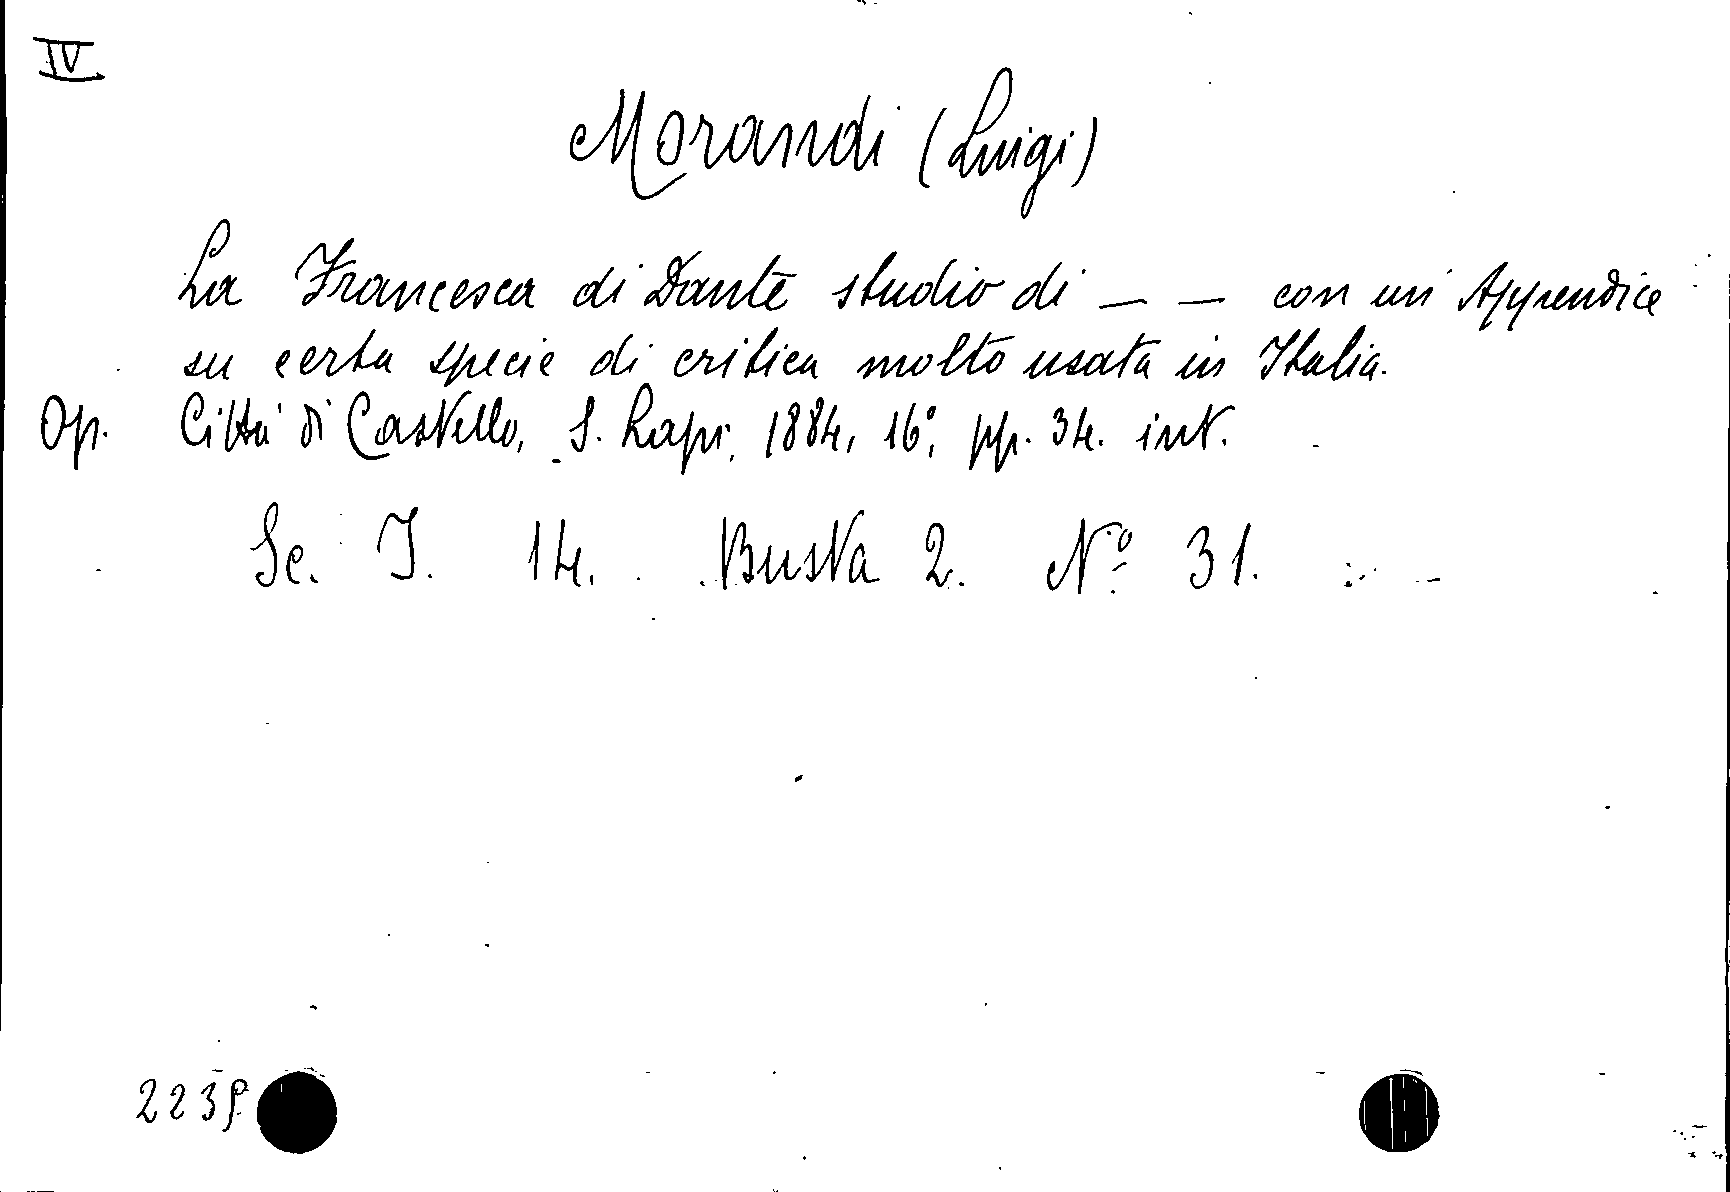 IV
Morandi (Luigi)
La Francesca di Dante studio di — — con un' Appendice
su certa specie di critica molto usata in Italia.
Op. Città di Castello, S. Lapi, 1884, 16°, pp. 34. int.
Sc. I. 14. Busta 2. N° 31.